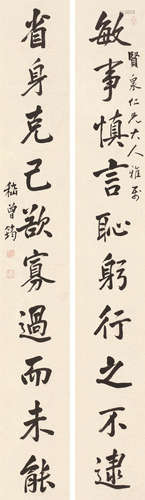 敏事慎言恥躬行之不逮
賢泉仁兄大人雅屬
省身克己欲寡過而未能
嵇曾筠